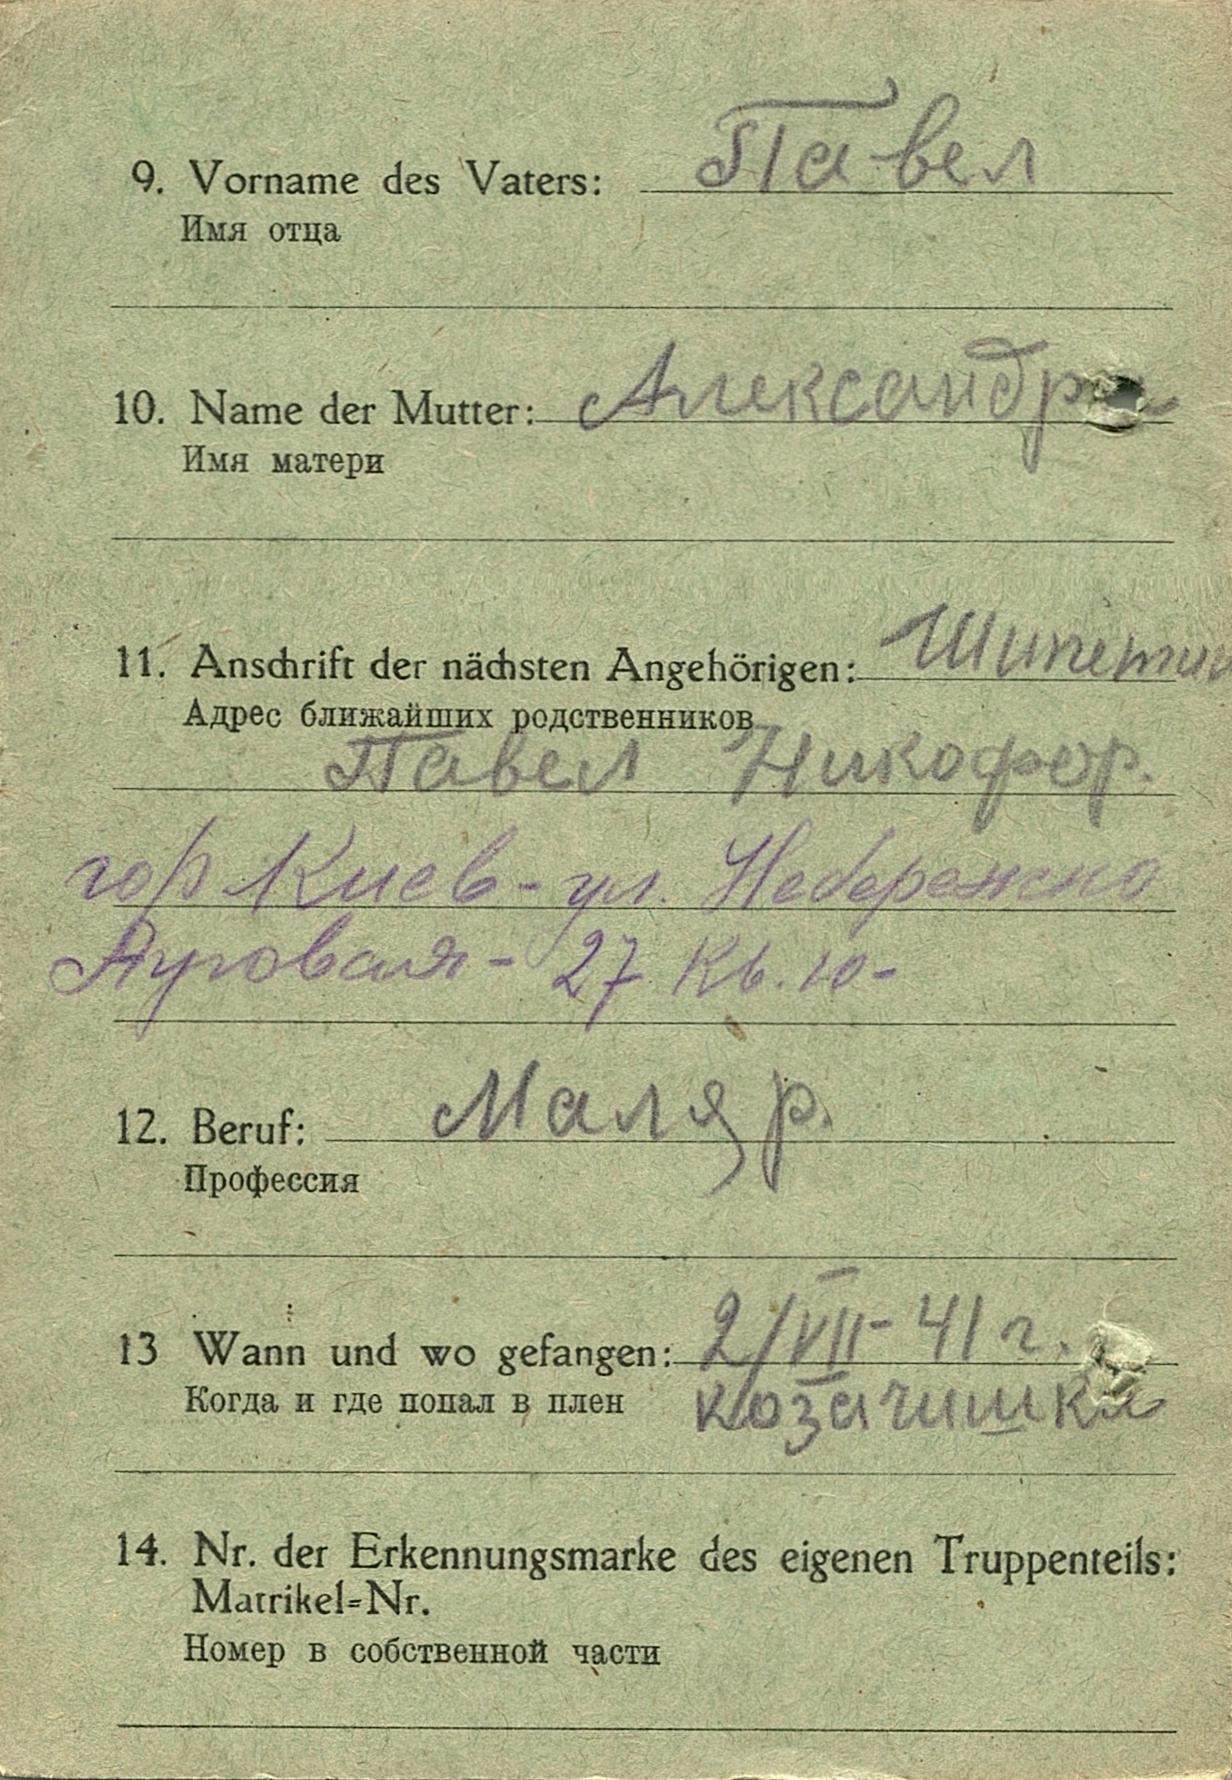 9. Vorname des Vaters: Павел
Имя отца
10. Name der Mutter: Александра
Имя матери
11. Anschrift der nächsten Angehörigen: Шипетин
Адрес ближайших родственников
Павел Никофор.
гор Киев - ул. Небережно
Луговая - 27 Кв. 10-
12. Beruf: Маляр.
Профессия
13 Wann und wo gefangen: 2/VII-41 г.
Когда и где попал в плен козачишки
14. Nr. der Erkennungsmarke des eigenen Truppenteils:
Matrikel=Nr.
Номер в собственной части